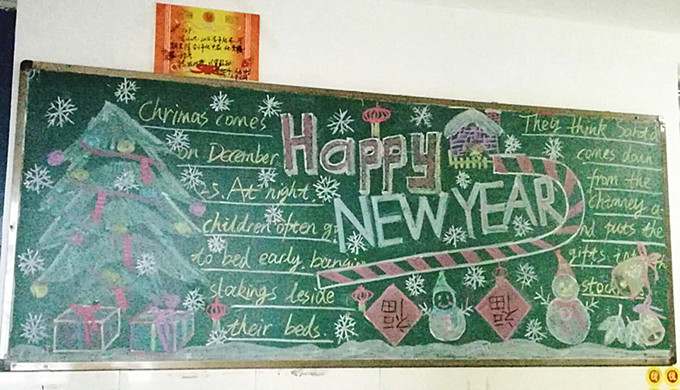 Happy
NEW YEAR
Chrimas comes
on December
25. At night,
children often g
to bed early, hanging
stokings beside
their beds.
They think Santa
comes down
from the
chimney a
nd puts the
gifts
stock
福
福